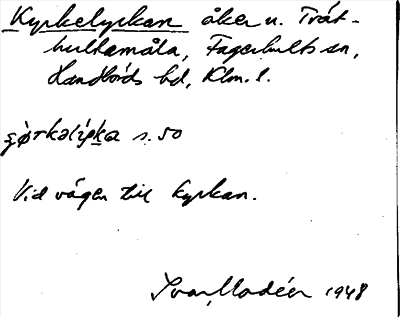 Kyrkelyckan åker u. Tråt-
hultamåla, Fagerhults sn,
Handbörds hd, Klm. l.
s. 50
Vid vägen till kyrkan.
Ivar Modéer 1948